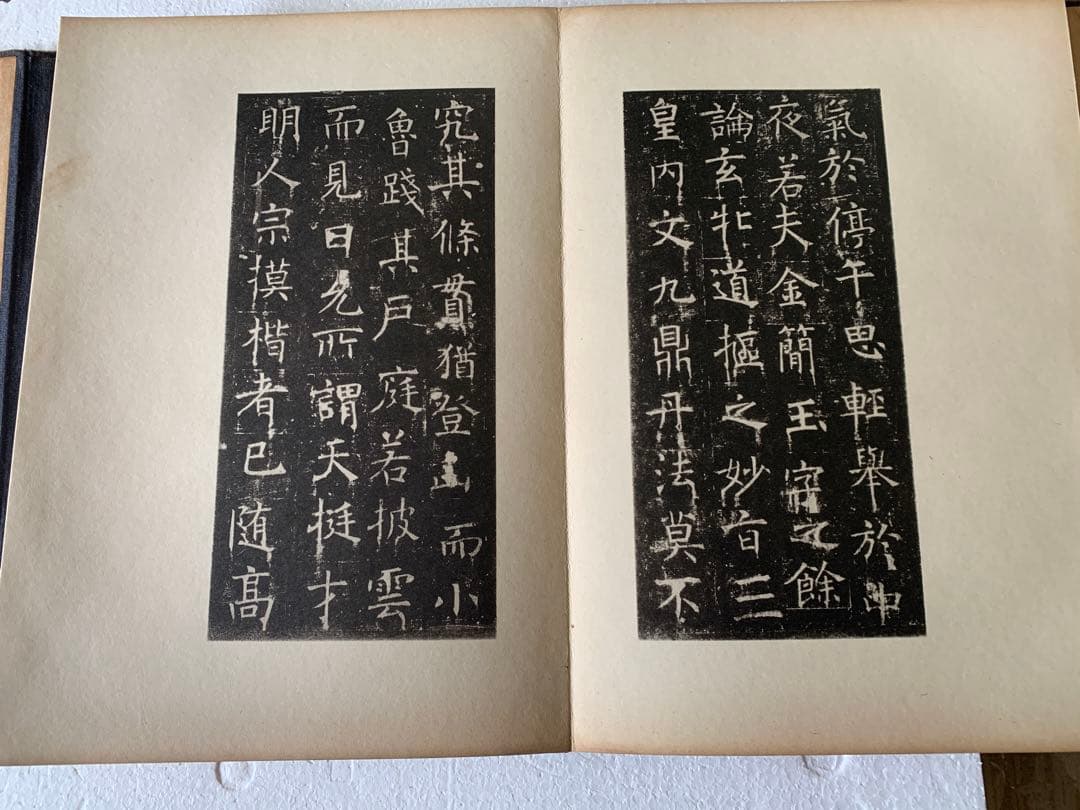 氣於停午思輕舉於中
夜若夫金簡玉字之餘
論玄牝道樞之妙旨三
皇內文九鼎丹法莫不
究其條貫猶登山而小
魯踐其戶庭若披雲
而見日允所謂天挺才
明人宗摸楷者已随高